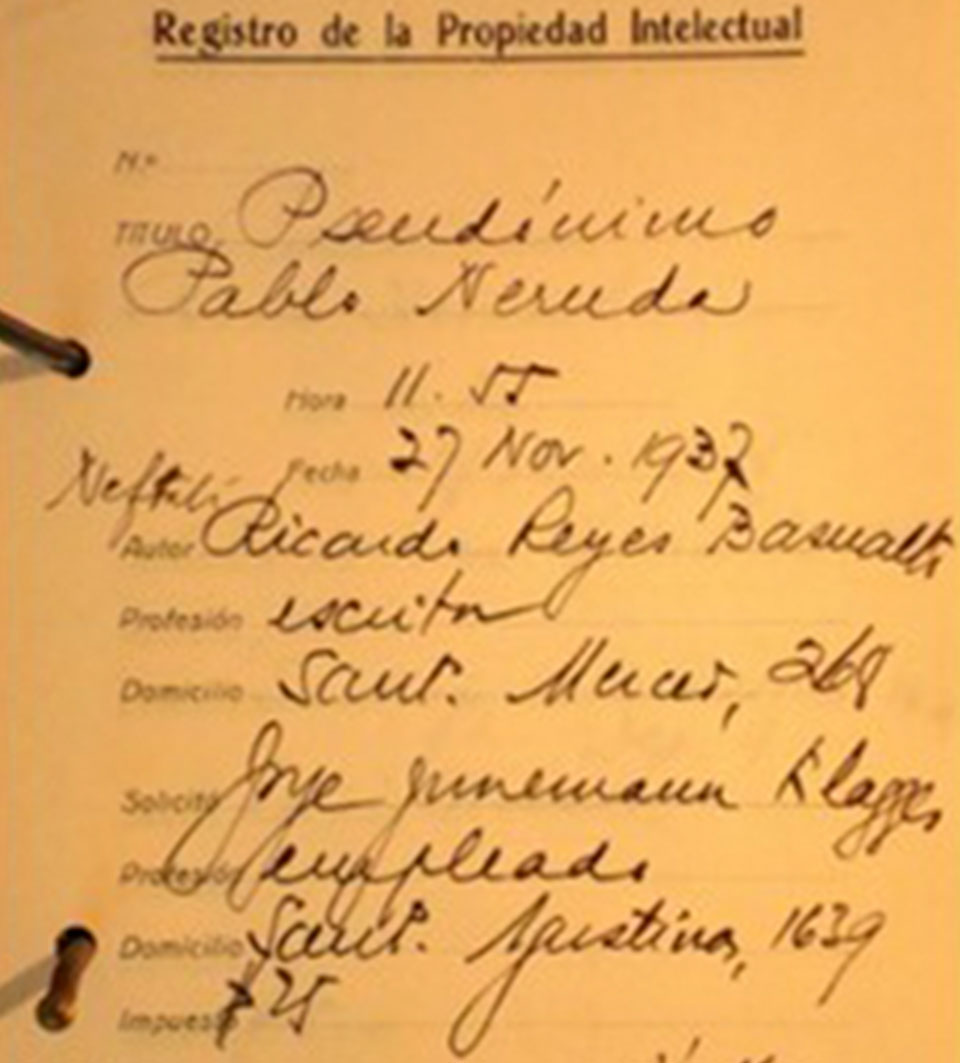 Registro de la Propiedad Intelectual
N.º
TITULO Pseudónimo
Pablo Neruda
Hora 11.55
Fecha 27 Nov. 1937
Neftalí
Autor Ricardo Reyes Basualto
Profesión escritor
Domicilio Sant. Merced, 268
Solicitó Jorge Junemann Klagges
Profesión empleado
Domicilio Sant. Agustinas, 1639
Impuesto $25